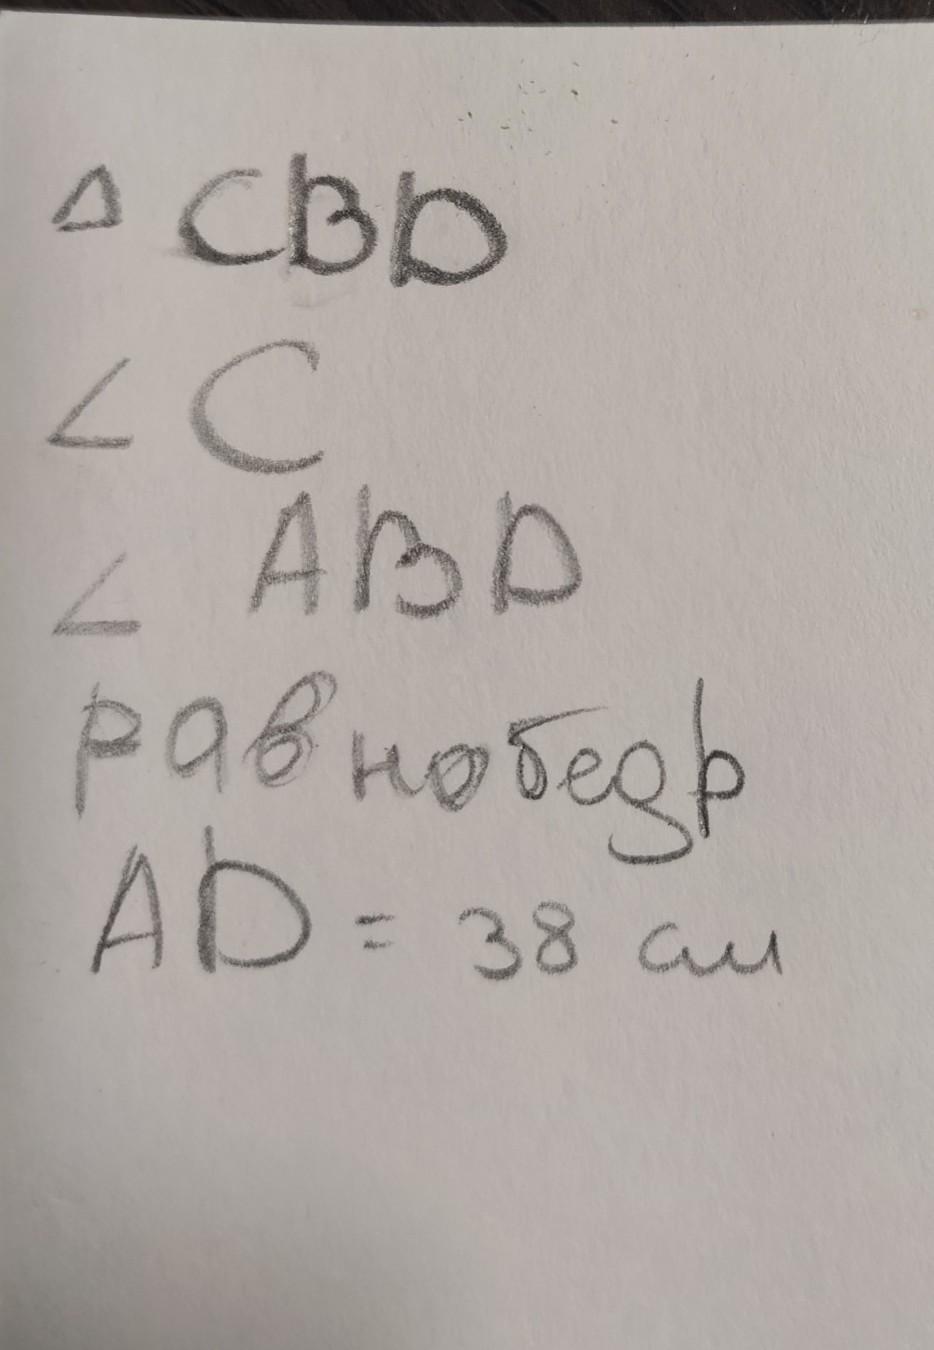 △ CBD
∠ C
∠ ABD
равнобедр
AD = 38 см